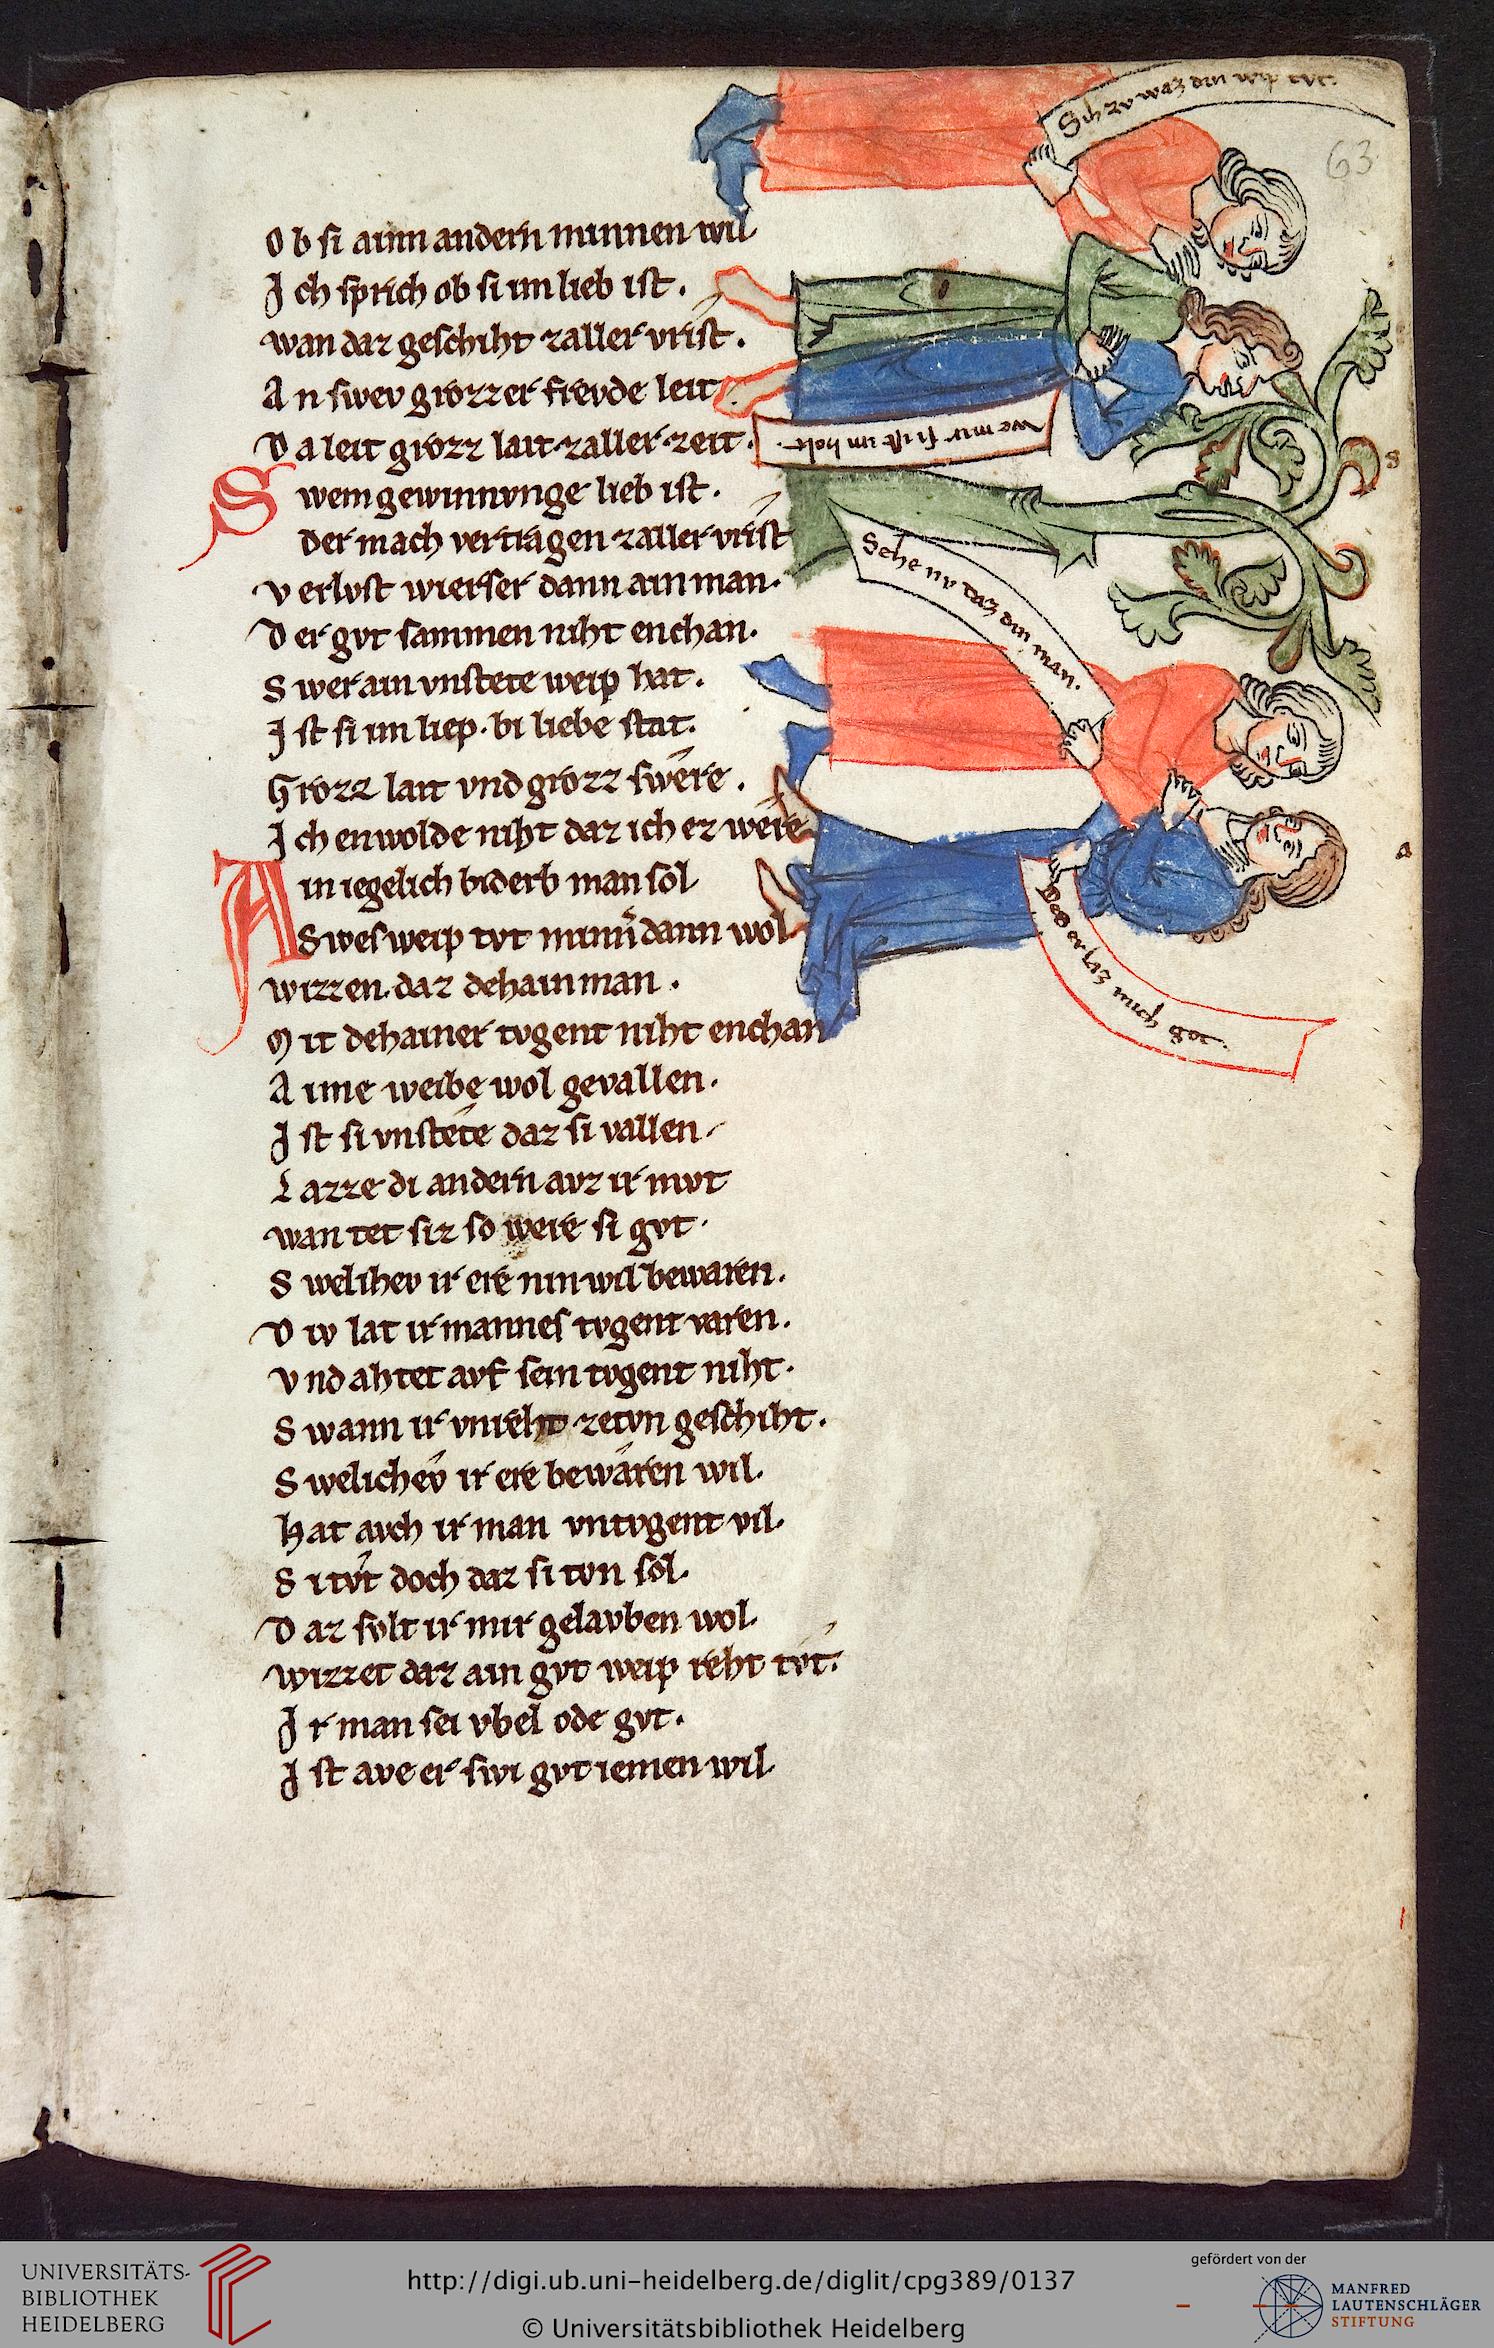 Sih zv waz din wip tvt.
63
O b si ainn andern minnen wil
J ch sprich ob si im lieb ist.
wan daz geschiht zaller vrist.
A n swev grozzer frevde leit.
D a leit grozz lait zaller zeit.
we mir si ist im holt.
S wem gewinnvnge lieb ist.
der mach vertragen zaller vrist
Sehe nv daz din man.
v erlvst wierser dann ain man.
D er gvt sammen niht enchan.
S wer ain vnstete weip hat.
J st si im liep. bi liebe stat.
Grozz lait vnd grozz swere.
J ch enwolde niht daz ich ez were
A in iegelich biderb man sol
Swes weip tvt minn dann wol
Des erlaz mich got.
wizzen. daz dehain man.
M it dehainer tvgent niht enchan
A ime weibe wol gevallen.
J st si vnstete daz si vallen
L azze di andern avz ir mvt
wan tet siz so were si gvt.
S welihev ir ere nin wil bewaren.
D iv lat ir mannes tvgent varen.
v nd ahtet avf sein tvgent niht.
S wann ir vnreht zetvn geschiht.
S welichev ir ere bewaren wil.
Hat avch ir man vntvgent vil.
S i tvt doch daz si tvn sol.
D az svlt ir mir gelavben wol.
wizzet daz ain gvt weip reht tvt.
J r man sei vbel ode gvt.
J st ave er swi gvt iemen wil.
s
a
UNIVERSITÄTS-
BIBLIOTHEK
HEIDELBERG
http://digi.ub.uni-heidelberg.de/diglit/cpg389/0137
© Universitätsbibliothek Heidelberg
gefördert von der
MANFRED
LAUTENSCHLÄGER
STIFTUNG